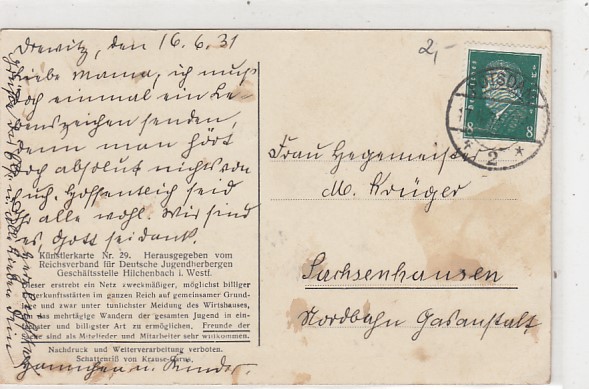 Drewitz, den 16.6.31
Liebe Mama, ich muß
doch einmal ein Le-
benszeichen senden,
denn man hört
doch absolut nichts von
Euch. Hoffentlich seid
Ihr alle wohl. Wir sind
es, Gott sei dank.
Künstlerkarte Nr. 29. Herausgegeben vom
Reichsverband für Deutsche Jugendherbergen
Geschäftsstelle Hilchenbach i. Westf.
Dieser erstrebt ein Netz zweckmäßiger, möglichst billiger
Unterkunftsstätten im ganzen Reich auf gemeinsamer Grund-
lage und zwar unter tunlichster Meidung des Wirtshauses,
um das mehrtägige Wandern der gesamten Jugend in ein-
fachster und billigster Art zu ermöglichen. Freunde der
Sache sind als Mitglieder und Mitarbeiter sehr willkommen.
Nachdruck und Weiterverarbeitung verboten.
Schattenriß von Krause-Carus.
u. Kinder
2,-
POTSDAM
2
8 8
Frau Hegemeister
M. Krüger
Sachsenhausen
Nordbahn Gasanstalt